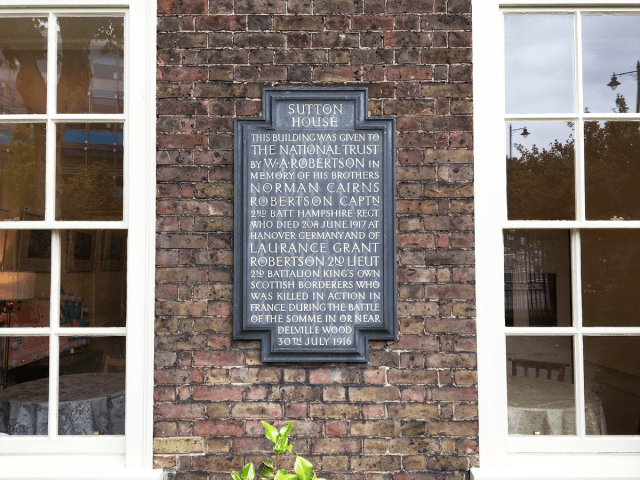 SUTTON
HOUSE
THIS BUILDING WAS GIVEN TO
THE NATIONAL TRUST
BY W·A·ROBERTSON IN
MEMORY OF HIS BROTHERS
NORMAN CAIRNS
ROBERTSON CAPTN
2ND BATT HAMPSHIRE REGT
WHO DIED 20TH JUNE 1917 AT
HANOVER GERMANY AND OF
LAURANCE GRANT
ROBERTSON 2ND LIEUT
2ND BATTALION KING'S OWN
SCOTTISH BORDERERS WHO
WAS KILLED IN ACTION IN
FRANCE DURING THE BATTLE
OF THE SOMME IN OR NEAR
DELVILLE WOOD
30TH JULY 1916